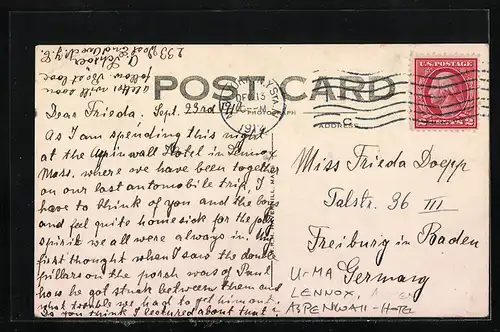 233
West End Av. N.Y.C.
A letter will soon
follow. Best love
POST CARD
U.S. POSTAGE
CENTS 2
STA.
1914
PHOTOGRAPH
ADDRESS
Dear Frieda. Sept. 23rd 1914
As I am spending this night
at the Aspinwall Hotel in Lenox
Mass. where we have been together
on our last automobile trip, I
have to think of you and the boys
and feel quite homesick for the jolly
spirit we all were always in. My
first thought when I saw the double
pillers on the porch was of Paul
how he got stuck between them and
what trouble we had to get him out.
As you think I lectured about that I
Miss Frieda Doepp
Talstr. 36 III
Freiburg in Baden
Germany
UrMA
LENNOX,
ASPENWALL-HOTEL